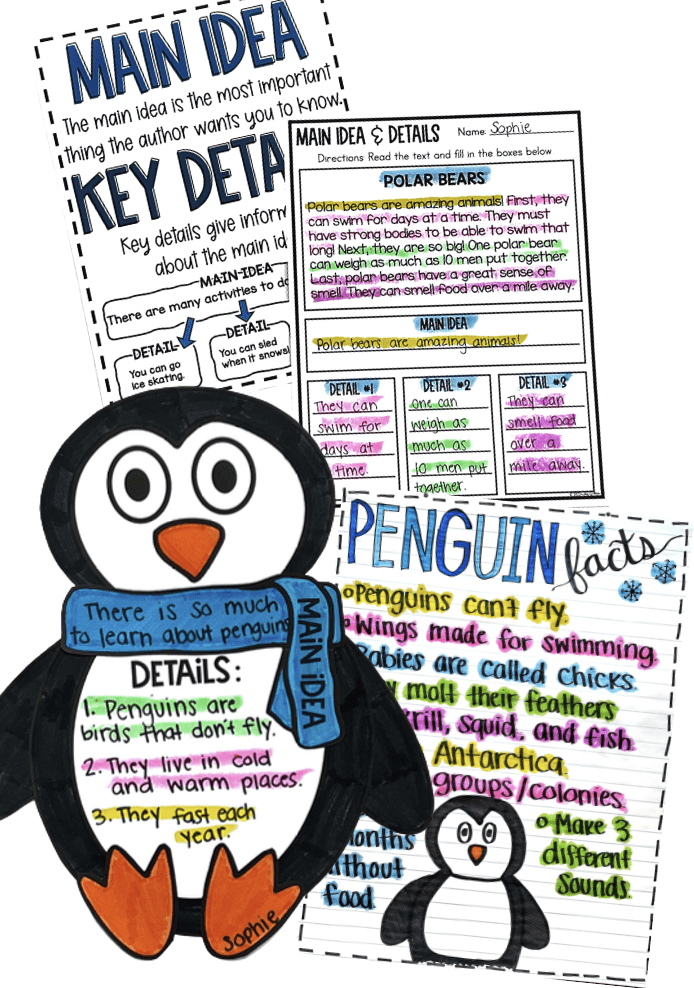 MAIN IDEA
The main idea is the most important
thing the author wants you to know.
KEY
Key details give
about the main
MAIN IDEA
There are many activities to
DETAIL
You can go
ice skating.
DETAIL
You can sled
when it snows!
MAIN IDEA & DETAILS
Name: Sophie
Directions Read the text and fill in the boxes below
POLAR BEARS
Polar bears are amazing animals! First, they
can swim for days at a time. They must
have strong bodies to be able to swim that
long! Next, they are so big! One polar bear
can weigh as much as 10 men put together.
Last, polar bears have a great sense of
smell. They can smell food over a mile away.
MAIN IDEA
Polar bears are amazing animals!
DETAIL #1
They can
swim for
days at
time.
DETAIL #2
One can
weigh as
much as
10 men put
together.
DETAIL #3
They can
smell food
over a
mile away.
There is so much
to learn about penguins
MAIN IDEA
DETAILS:
1. Penguins are
birds that don't fly.
2. They live in cold
and warm places.
3. They fast each
year.
Sophie
PENGUIN facts
Penguins can't fly.
Wings made for swimming.
Babies are called chicks.
molt their feathers
krill, squid, and fish.
Antarctica.
groups/colonies.
months
without
food.
Make 3
different
Sounds.